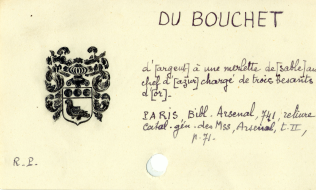 DU BOUCHET
d'[argent] à une merlette de [sable] au
chef d'[azur] chargé de trois besants
d'[or].
PARIS, Bibl. Arsenal, 741, reliure
Catal. gén. des Mss, Arsenal, t. II,
p. 71.
R. P.